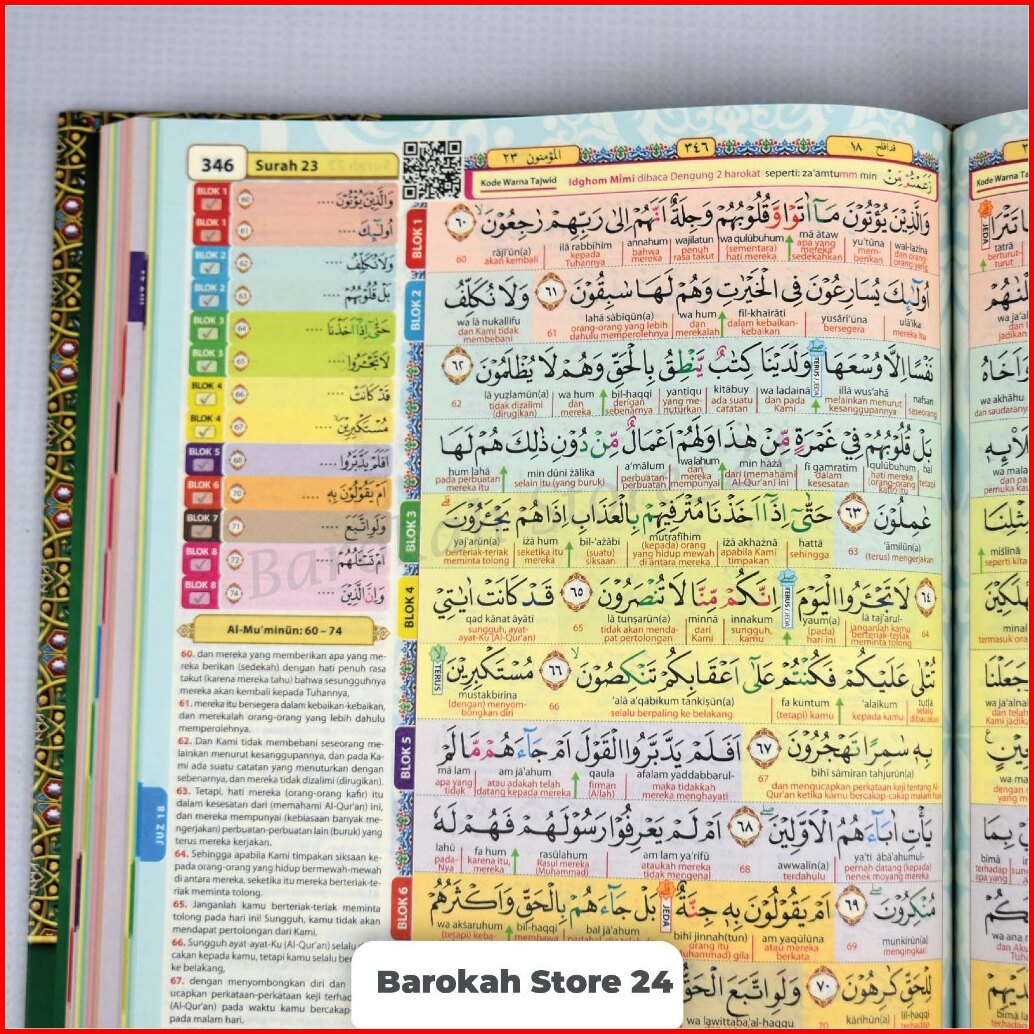 346 Surah 23
المؤمنون ٢٣
٣٤٦
قد افلح ١٨
Kode Warna Tajwid Idghom Mimi dibaca Dengung 2 harokat seperti: za'amtumm min
BLOK 1 وَالَّذِيْنَ يُؤْتُوْنَ.... 60
BLOK 1 اُولٰۤىِٕكَ .... 61
BLOK 2 وَلَا نُكَلِّفُ .... 62
BLOK 2 بَلْ قُلُوْبُهُمْ .... 63
BLOK 3 حَتّٰىٓ اِذَآ اَخَذْنَا .... 64
BLOK 3 لَا تَجْـَٔرُوا .... 65
BLOK 4 قَدْ كَانَتْ .... 66
BLOK 4 مُسْتَكْبِرِيْنَ .... 67
BLOK 5 اَفَلَمْ يَدَّبَّرُوا .... 68
BLOK 6 اَمْ يَقُوْلُوْنَ بِهٖ .... 70
BLOK 7 وَلَوِ اتَّبَعَ .... 71
BLOK 8 اَمْ تَسْـَٔلُهُمْ .... 72
BLOK 8 وَاِنَّ الَّذِيْنَ .... 74
Al-Mu'minūn: 60 – 74
60. dan mereka yang memberikan apa yang me-
reka berikan (sedekah) dengan hati penuh rasa
takut (karena mereka tahu) bahwa sesungguhnya
mereka akan kembali kepada Tuhannya,
61. mereka itu bersegera dalam kebaikan-kebaikan,
dan merekalah orang-orang yang lebih dahulu
memperolehnya.
62. Dan Kami tidak membebani seseorang me-
lainkan menurut kesanggupannya, dan pada Ka-
mi ada suatu catatan yang menuturkan dengan
sebenarnya, dan mereka tidak dizalimi (dirugikan).
63. Tetapi, hati mereka (orang-orang kafir) itu
dalam kesesatan dari (memahami Al-Qur'an) ini,
dan mereka mempunyai (kebiasaan banyak me-
ngerjakan) perbuatan-perbuatan lain (buruk) yang
terus mereka kerjakan.
64. Sehingga apabila Kami timpakan siksaan ke-
pada orang-orang yang hidup bermewah-mewah
di antara mereka, seketika itu mereka berteriak-te-
riak meminta tolong.
65. Janganlah kamu berteriak-teriak meminta
tolong pada hari ini! Sungguh, kamu tidak akan
mendapat pertolongan dari Kami.
66. Sungguh ayat-ayat-Ku (Al-Qur'an) selalu
cakan kepada kamu, tetapi kamu selalu
ke belakang,
67. dengan menyombongkan diri dan
ucapkan perkataan-perkataan keji terhadap
(Al-Qur'an) pada waktu kamu bercakap-
pada malam hari.
JUZ 18
BLOK 1
وَالَّذِيْنَ يُؤْتُوْنَ مَآ اٰتَوْا وَّقُلُوْبُهُمْ وَجِلَةٌ اَنَّهُمْ اِلٰى رَبِّهِمْ رٰجِعُوْنَ ۙ ٦٠
wal-lażīna yu'tūna mā ātaw wa qulūbuhum wajilatun annahum ilā rabbihim rāji'ūn(a) 60
dan orang-orang yang mem-berikan apa yang mereka sedekahkan (sementara) hati mereka penuh rasa takut bahwa mereka kepada Tuhannya akan kembali
BLOK 2
اُولٰۤىِٕكَ يُسَارِعُوْنَ فِى الْخَيْرٰتِ وَهُمْ لَهَا سٰبِقُوْنَ ٦١ وَلَا نُكَلِّفُ
ulā'ika yusāri'ūna fil-khairāti wa hum lahā sābiqūn(a) 61 wa lā nukallifu
mereka itu bersegera dalam kebaikan-kebaikan, dan merekalah orang-orang yang lebih dahulu memperolehnya dan Kami tidak membebani
نَفْسًا اِلَّا وُسْعَهَا وَلَدَيْنَا كِتٰبٌ يَّنْطِقُ بِالْحَقِّ وَهُمْ لَا يُظْلَمُوْنَ ٦٢
nafsan illā wus'ahā wa ladainā kitābuy yanṭiqu bil-ḥaqqi wa hum lā yuẓlamūn(a) 62
seseorang melainkan menurut kesanggupannya dan pada Kami ada suatu catatan yang me-nuturkan dengan sebenarnya dan mereka tidak dizalimi (dirugikan)
بَلْ قُلُوْبُهُمْ فِيْ غَمْرَةٍ مِّنْ هٰذَا وَلَهُمْ اَعْمَالٌ مِّنْ دُوْنِ ذٰلِكَ هُمْ لَهَا
bal qulūbuhum fī gamratim min hażā wa lahum a'mālum min dūni żālika hum lahā
hati mereka (orang-orang kafir) itu dalam kesesatan dari (memahami Al-Qur'an) ini dan mereka mempunyai perbuatan-perbuatan selain itu (yang buruk) pada perbuatan mereka itu
BLOK 3
عٰمِلُوْنَ ٦٣ حَتّٰىٓ اِذَآ اَخَذْنَا مُتْرَفِيْهِمْ بِالْعَذَابِ اِذَا هُمْ يَجْـَٔرُوْنَ
'āmilūn(a) 63 hattā iżā akhażnā mutrafīhim bil-'ażābi iżā hum yaj'arūn(a)
(terus) mengerjakan sehingga apabila Kami timpakan (kepada) orang yang hidup mewah di antara mereka (suatu) siksaan seketika itu mereka berteriak-teriak meminta tolong
BLOK 4
٦٤ لَا تَجْـَٔرُوا الْيَوْمَ اِنَّكُمْ مِّنَّا لَا تُنْصَرُوْنَ ٦٥ قَدْ كَانَتْ اٰيٰتِيْ
64 lā taj'arul yauma innakum minnā lā tunṣarūn(a) 65 qad kānat āyātī
janganlah kamu berteriak-teriak meminta tolong (pada) hari ini sungguh, kamu dari Kami tidak akan menda-pat pertolongan sungguh, ayat-ayat-Ku (Al-Qur'an)
تُتْلٰى عَلَيْكُمْ فَكُنْتُمْ عَلٰٓى اَعْقَابِكُمْ تَنْكِصُوْنَ ۙ ٦٦ مُسْتَكْبِرِيْنَ
tutlā 'alaikum fa kuntum 'alā a'qābikum tankiṣūn(a) 66 mustakbirīna
selalu dibacakan kepada kamu (tetapi) kamu selalu berpaling ke belakang (dengan) menyom-bongkan diri
BLOK 5
بِهٖ سٰمِرًا تَهْجُرُوْنَ ٦٧ اَفَلَمْ يَدَّبَّرُوا الْقَوْلَ اَمْ جَاۤءَهُمْ مَّا لَمْ
bihī sāmiran tahjurūn(a) 67 afalam yaddabbarul- qaula am jā'ahum mā lam
dan mengucapkan perkataan keji tentang Al-Qur'an ketika kamu bercakap-cakap malam hari maka tidakkah mereka menghayati firman (Allah) atau adakah telah datang kepada mereka apa yang tidak
يَأْتِ اٰبَاۤءَهُمُ الْاَوَّلِيْنَ ٦٨ اَمْ لَمْ يَعْرِفُوْا رَسُوْلَهُمْ فَهُمْ لَهٗ
ya'ti ābā'ahumul- awwalīn(a) 68 am lam ya'rifū rasūlahum fa hum lahū
pernah datang (kepada) nenek moyang mereka terdahulu ataukah mereka tidak mengenal Rasul mereka (Muhammad) karena itu, mereka pada-Nya
BLOK 6
مُنْكِرُوْنَ ٦٩ اَمْ يَقُوْلُوْنَ بِهٖ جِنَّةٌ بَلْ جَاۤءَهُمْ بِالْحَقِّ وَاَكْثَرُهُمْ
munkirūn(a) 69 am yaqūlūna bihī jinnah(tun) bal jā'ahum bil-ḥaqqi wa akṡaruhum
mengingkari atau mereka berkata orang itu gila membawa
لِلْحَقِّ كٰرِهُوْنَ ٧٠ وَلَوِ اتَّبَعَ الْحَقُّ
kārihūn(a) 70 wa lawittaba'al-ḥaqqu
Barokah Store 24